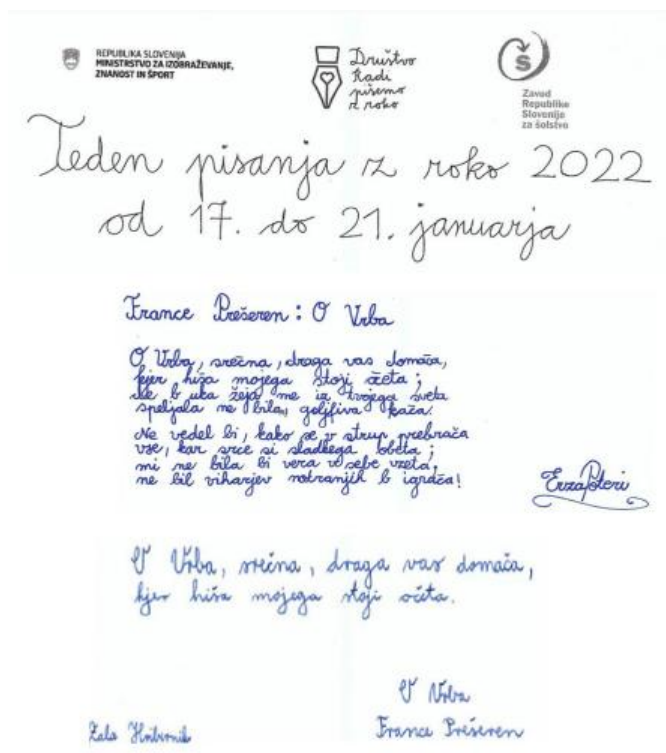 REPUBLIKA SLOVENIJA
MINISTRSTVO ZA IZOBRAŽEVANJE,
ZNANOST IN ŠPORT
Društvo
Radi
pišemo
z roko
Š
Zavod
Republike
Slovenije
za šolstvo
Teden pisanja z roko 2022
od 17. do 21. januarja
France Prešeren: O Vrba
O Vrba, srečna, draga vas domača,
kjer hiša mojega stoji očeta;
de b' uka žeja me iz tvojega sveta
speljala ne bila, goljfiva kača!
Ne vedel bi, kako se v strup prebrača
vse, kar srce si sladkega obeta;
mi ne bila bi vera v sebe vzeta,
ne bil viharjev notranjih b' igrača!
Erza Poteri
O Vrba, srečna, draga vas domača,
kjer hiša mojega stoji očeta.
O Vrba
Zala Hribernik
France Prešeren